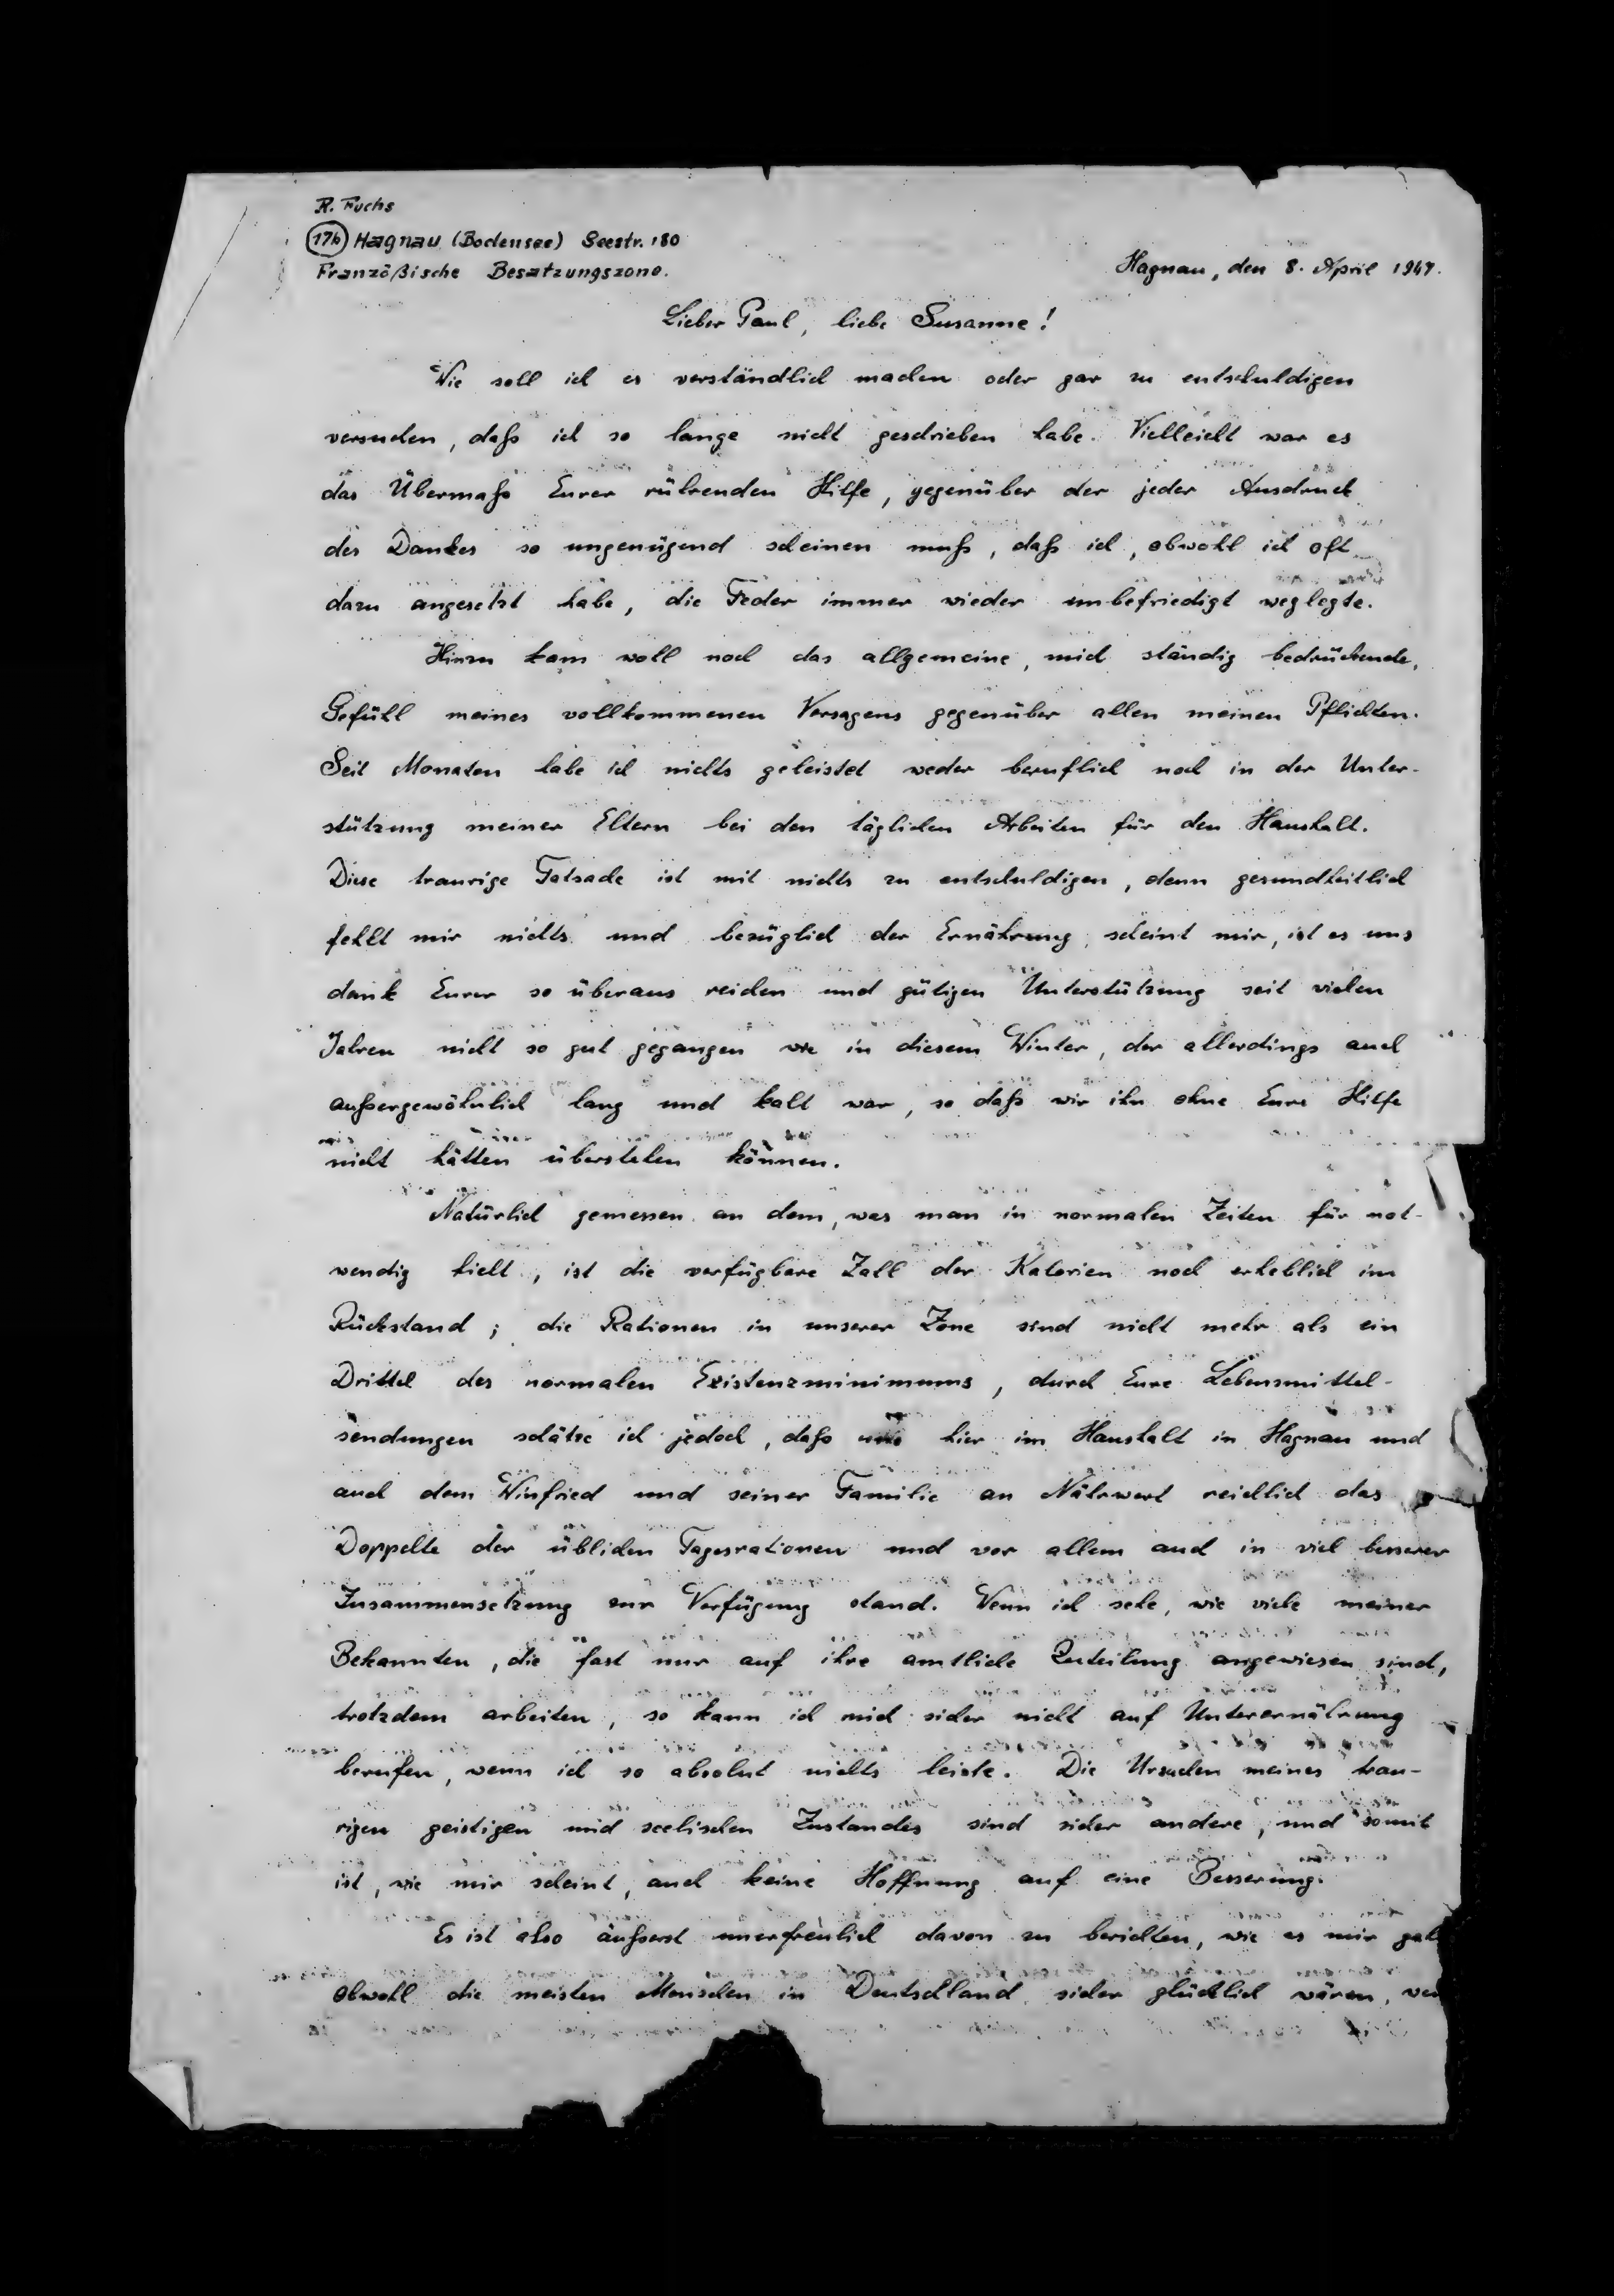 R. Fuchs
17b Hagnau (Bodensee) Seestr. 180
Französische Besatzungszone.
Hagnau, den 8. April 1947.
Lieber Paul, liebe Susanne!
Wie soll ich es verständlich machen oder gar zu entschuldigen
versuchen, daß ich so lange nicht geschrieben habe. Vielleicht war es
das Übermaß Eurer rührenden Hilfe, gegenüber der jeder Ausdruck
des Dankes so ungenügend scheinen muß, daß ich, obwohl ich oft
dazu angesetzt habe, die Feder immer wieder unbefriedigt weglegte.
Hinzu kam wohl noch das allgemeine, mich ständig bedrückende,
Gefühl meines vollkommenen Versagens gegenüber allen meinen Pflichten.
Seit Monaten habe ich nichts geleistet weder beruflich noch in der Unter-
stützung meiner Eltern bei den täglichen Arbeiten für den Haushalt.
Diese traurige Tatsache ist mit nichts zu entschuldigen, denn gesundheitlich
fehlt mir nichts und bezüglich der Ernährung, scheint mir, ist es uns
dank Eurer so überaus reichen und gütigen Unterstützung seit vielen
Jahren nicht so gut gegangen wie in diesem Winter, der allerdings auch
außergewöhnlich lang und kalt war, so daß wir ihn ohne Eure Hilfe
nicht hätten überstehen können.
Natürlich gemessen an dem, was man in normalen Zeiten für not-
wendig hielt, ist die verfügbare Zahl der Kalorien noch erheblich im
Rückstand; die Rationen in unserer Zone sind nicht mehr als ein
Drittel des normalen Existenzminimums, durch Eure Lebensmittel-
sendungen schätze ich jedoch, daß uns hier im Haushalt in Hagnau und
auch dem Winfried und seiner Familie an Nährwert reichlich das
Doppelte der üblichen Tagesrationen und vor allem auch in viel besserer
Zusammensetzung zur Verfügung stand. Wenn ich sehe, wie viele meiner
Bekannten, die fast nur auf ihre amtliche Zuteilung angewiesen sind,
trotzdem arbeiten, so kann ich mich sicher nicht auf Unterernährung
berufen, wenn ich so absolut nichts leiste. Die Ursachen meines trau-
rigen geistigen und seelischen Zustandes sind sicher andere, und somit
ist, wie mir scheint, auch keine Hoffnung auf eine Besserung.
Es ist also äußerst unerfreulich davon zu berichten, wie es mir
obwohl die meisten Menschen in Deutschland sicher glücklich wären,